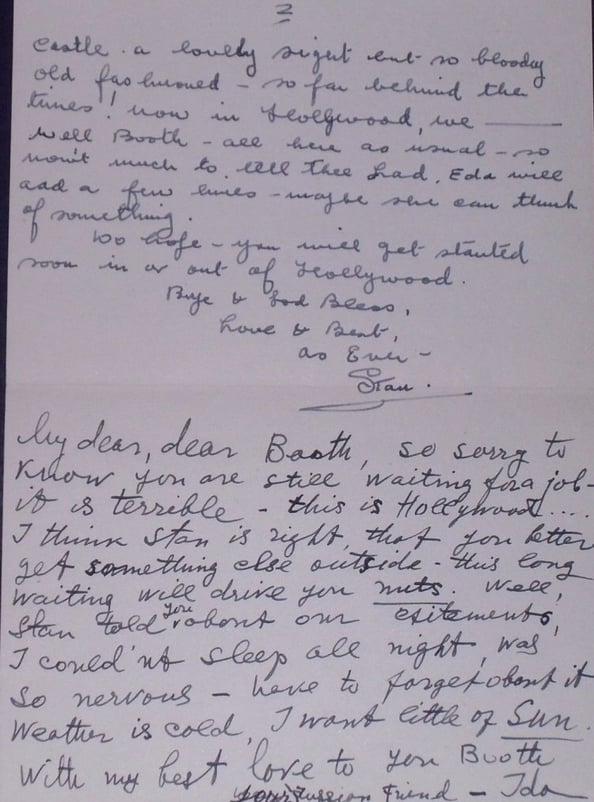 2
Castle. a lovely sight but so bloody
old fashioned - so far behind the
times! now in Hollywood, we ———
Well Booth - all here as usual - so
won't much to tell thee Lad. Eda will
add a few lines - maybe she can think
of something.
Do hope - you will get started
soon in or out of Hollywood.
Bye & God Bless,
Love & Best,
as Ever -
Stan.
My dear, dear Booth, so sorry to
know you are still waiting for a job -
it is terrible - this is Hollywood....
I think Stan is right, that you better
get something else outside - this long
waiting will drive you nuts. Well,
Stan told you about our exitements,
I could'nt sleep all night, was
so nervous - have to forget about it
Weather is cold, I want little of Sun.
With my best love to you Booth
your russion Friend - Ida